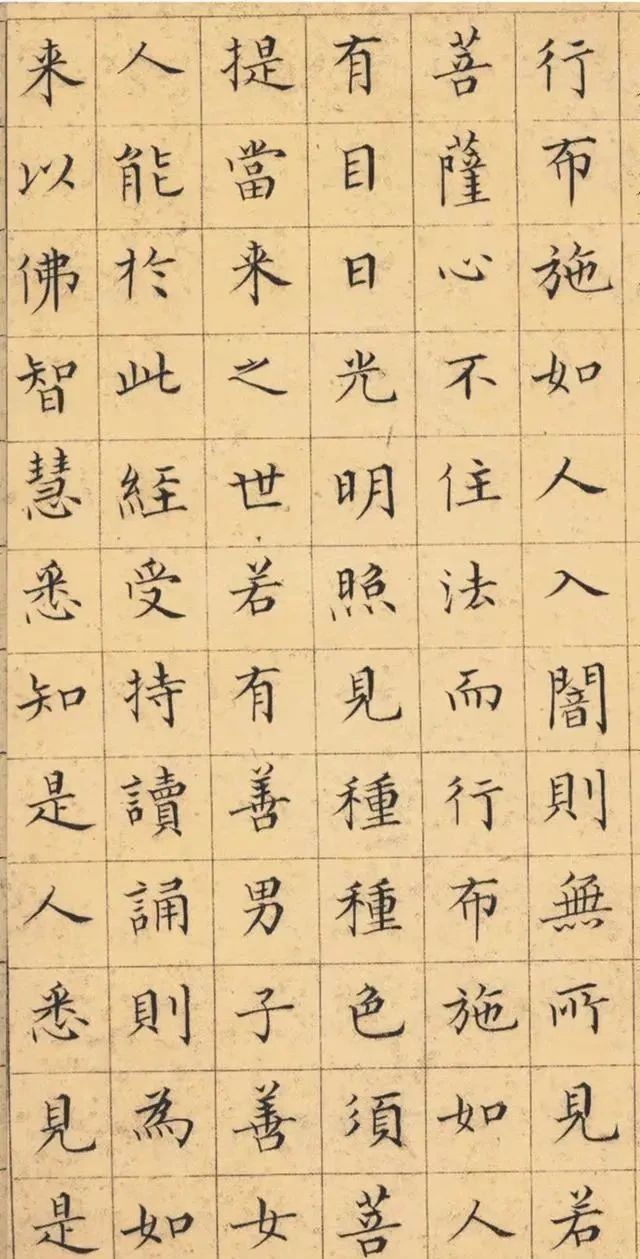 行布施如人入闇則無所見若
菩薩心不住法而行布施如人
有目日光明照見種種色須菩
提當来之世若有善男子善女
人能於此經受持讀誦則為如
来以佛智慧悉知是人悉見是